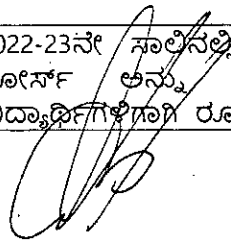 2022-23ನೇ ಸಾಲಿನಲ್ಲಿ
ಕೋರ್ಸ್ ಅನ್ನು
ವಿದ್ಯಾರ್ಥಿಗಳಿಗಾಗಿ ರೂ